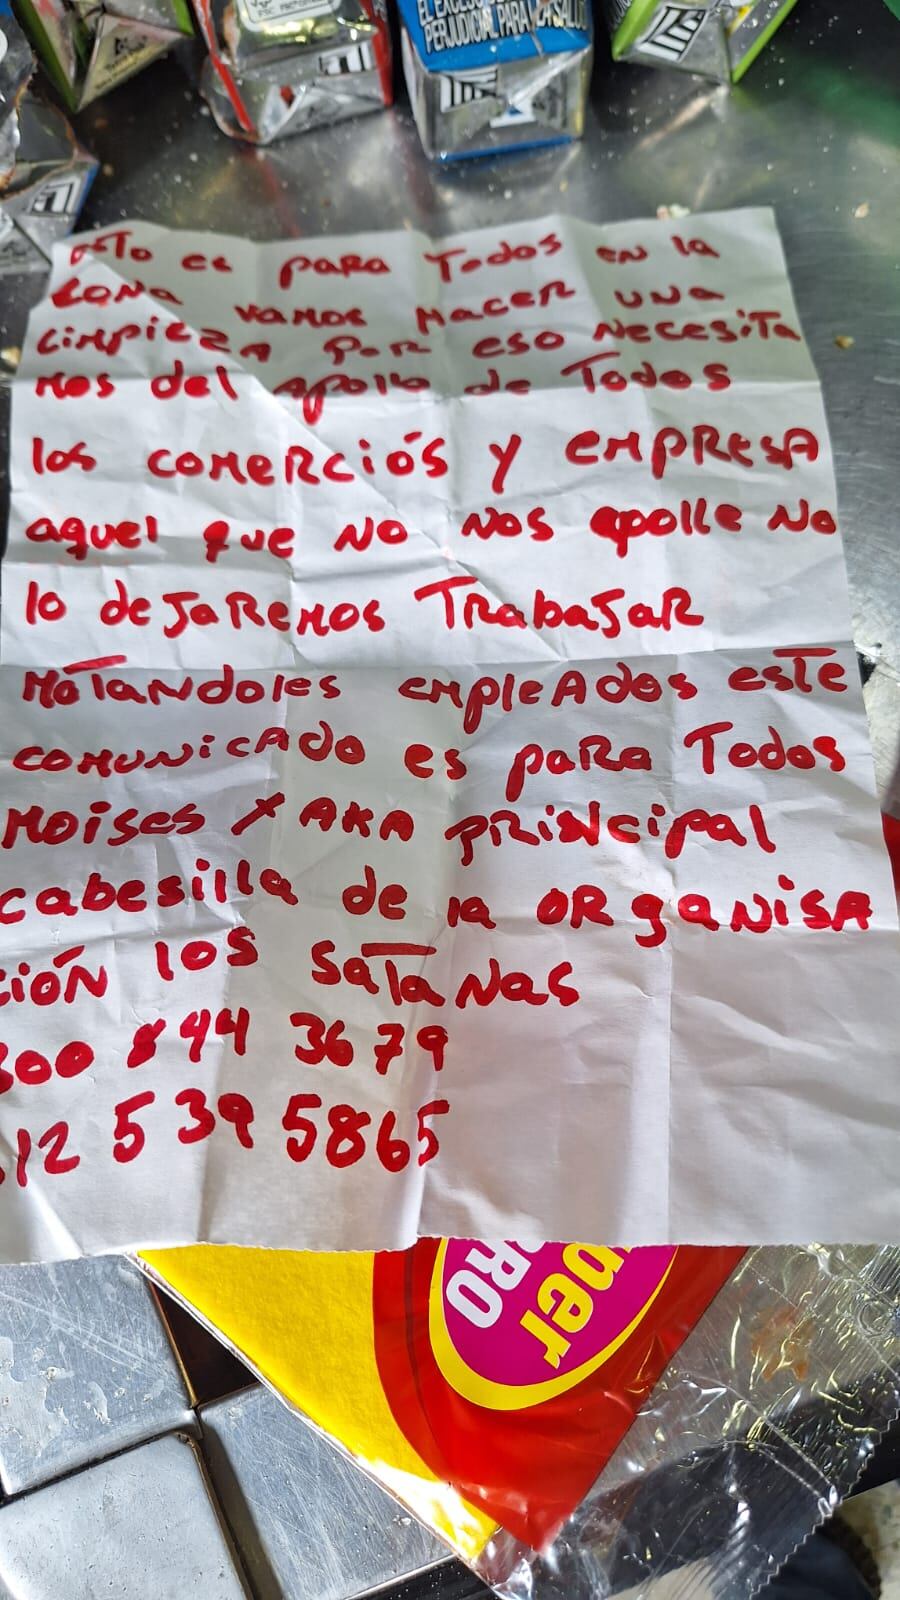 EL EXCESO DE
PERJUDICIAL PARA LA SALUD
esTo es paRa Todos en la
zona vamos Hacer una
Limpieza por eso necesita
mos del apollo de Todos
los comerciós y empresa
aquel que no nos apolle no
lo dejaremos Trabajar
MaTandoles empleados este
comunicado es para Todos
Moises X AKA principal
cabesilla de la organisa
ción los saTanas
300 844 3679
312 539 5865
per
RO